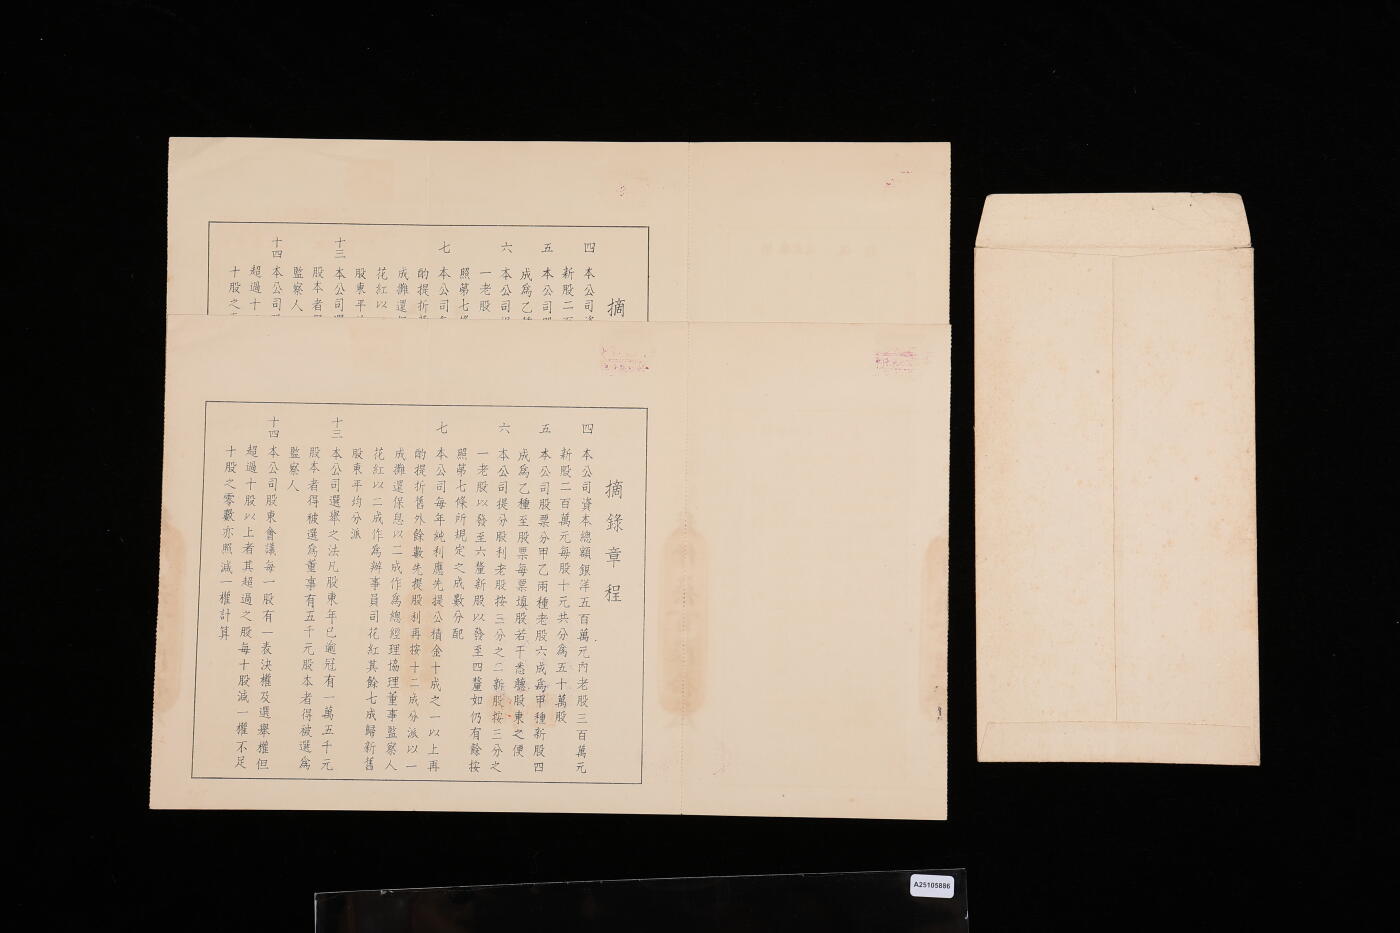 摘
四 本公司
新股二
五 本公司
成爲乙
六 本公司
一老股
照第七
七 本公司
酌提折
成攤還
花紅以
股東平
十三 本公司
股本者
監察人
十四 本公司
超過十
十股之
摘錄章程
四 本公司資本總額銀洋五百萬元內老股三百萬元
新股二百萬元每股十元共分爲五十萬股
五 本公司股票分甲乙兩種老股六成爲甲種新股四
成爲乙種至股票每票填股若干悉聽股東之便
六 本公司提分股利老股按三分之二新股按三分之
一老股以發至六釐新股以發至四釐如仍有餘按
照第七條所規定之成數分配
七 本公司每年純利應先提公積金十成之一以上再
酌提折舊外餘數先提股利再按十二成分派以一
成攤還保息以二成作爲總經理協理董事監察人
花紅以二成作爲辦事員司花紅其餘七成歸新舊
股東平均分派
十三 本公司選舉之法凡股東年已逾冠有一萬五千元
股本者得被選爲董事有五千元股本者得被選爲
監察人
十四 本公司股東會議每一股有一表決權及選舉權但
超過十股以上者其超過之股每十股減一權不足
十股之零數亦照減一權計算
A25105886